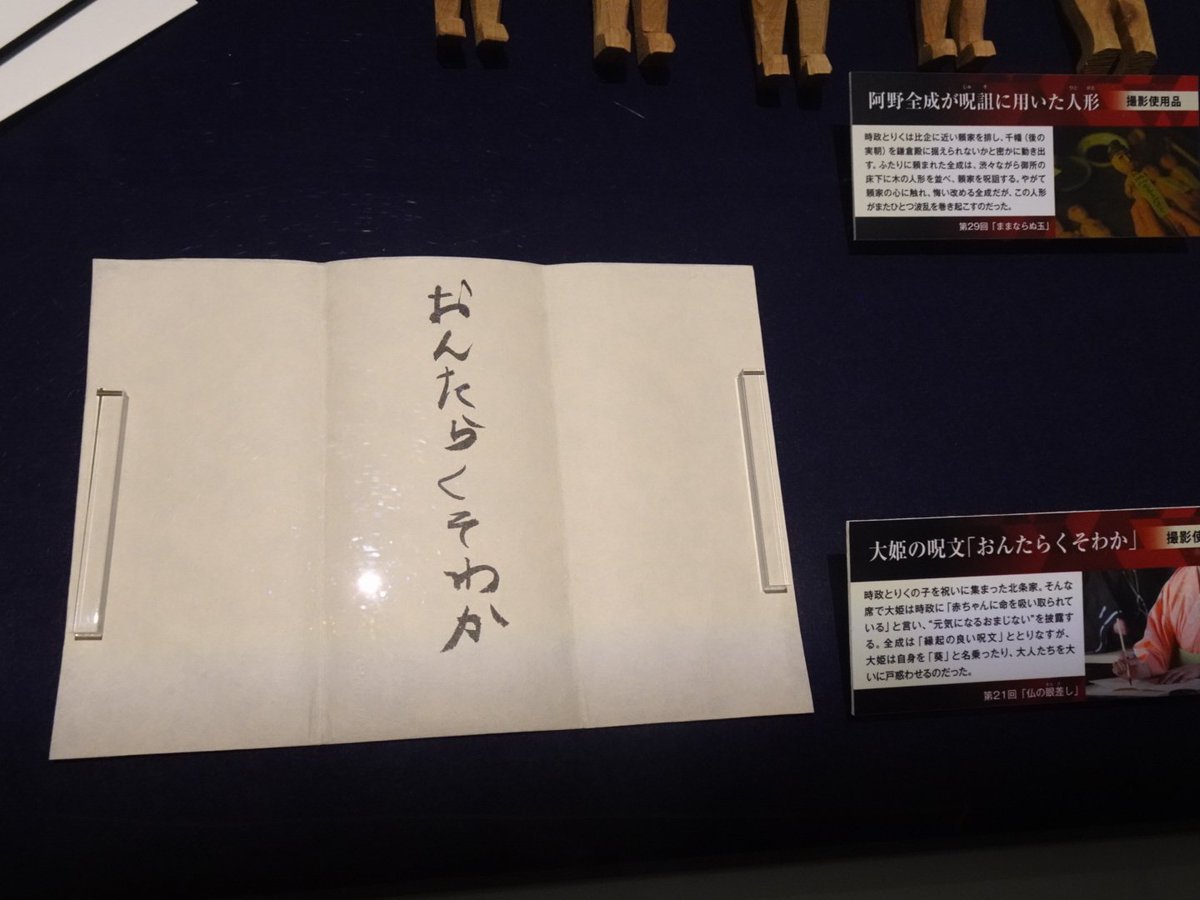 阿野全成が呪詛に用いた人形
じゅ そ
ひと がた
撮影使用品
時政とりくは比企に近い頼家を排し、千幡（後の
実朝）を鎌倉殿に据えられないかと密かに動き出
す。ふたりに頼まれた全成は、渋々ながら御所の
床下に木の人形を並べ、頼家を呪詛する。やがて
頼家の心に触れ、悔い改める全成だが、この人形
がまたひとつ波乱を巻き起こすのだった。
第29回「ままならぬ玉」
おんたらくそわか
大姫の呪文「おんたらくそわか」
撮影使
時政とりくの子を祝いに集まった北条家。そんな
席で大姫は時政に「赤ちゃんに命を吸い取られて
いる」と言い、“元気になるおまじない”を披露す
る。全成は「縁起の良い呪文」ととりなすが、
大姫は自身を「葵」と名乗ったり、大人たちを大
いに戸惑わせるのだった。
第21回「仏の眼差し」